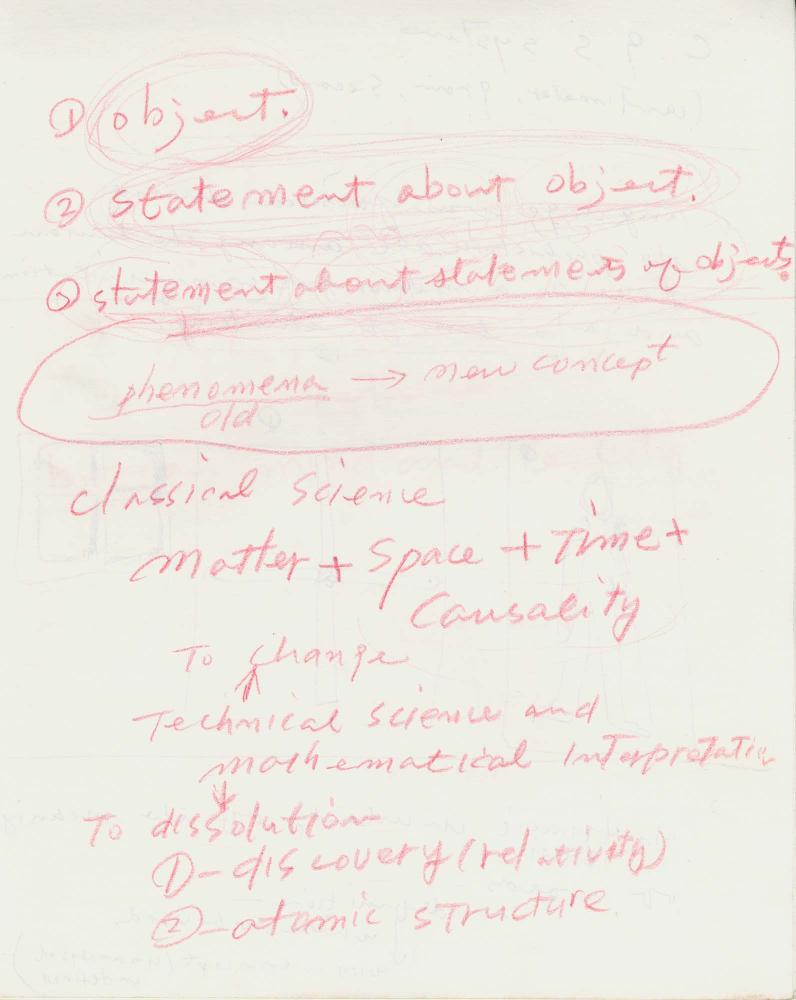 ① object.
② statement about object.
③ statement about statements of objects.
phenomena → new concept
old
classical science
matter + space + Time +
Causality
To change
Technical science and
mathematical interpretation
To dissolution
① - discovery (relativity)
② - atomic structure